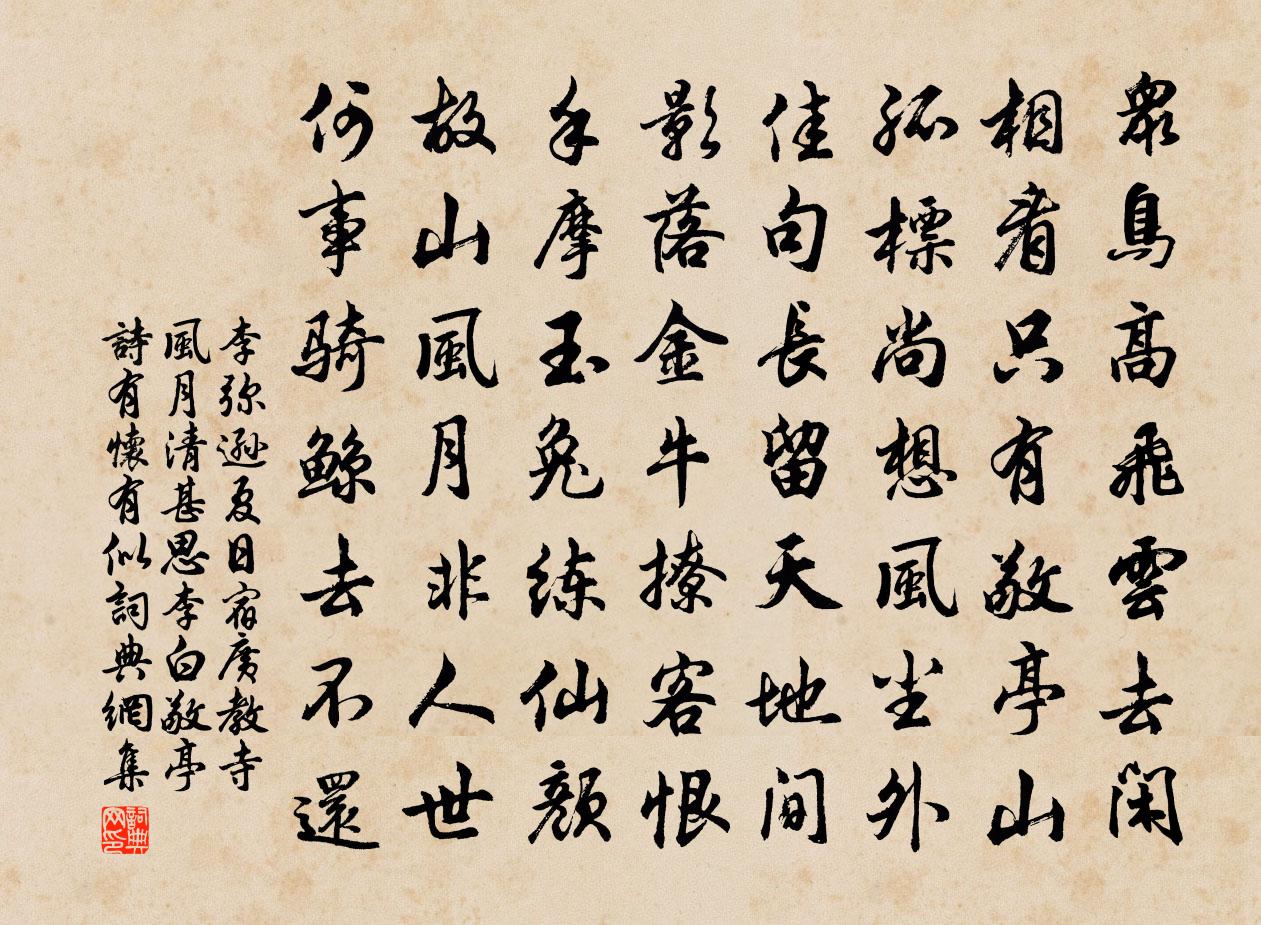 眾鳥高飛雲去閑
相看只有敬亭山
孤標尚想風塵外
佳句長留天地間
影落金牛撩客恨
手摩玉兔練仙顏
故山風月非人世
何事騎鯨去不還
李弥遜夏日宿廣教寺
風月清甚思李白敬亭
詩有懷有似詞典網集
詞典
网印